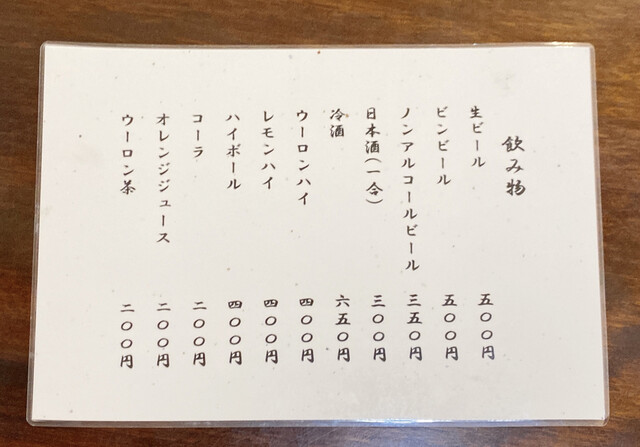 飲み物
生ビール 五〇〇円
ビンビール 五〇〇円
ノンアルコールビール 三五〇円
日本酒(一合) 三〇〇円
冷酒 六五〇円
ウーロンハイ 四〇〇円
レモンハイ 四〇〇円
ハイボール 四〇〇円
コーラ 二〇〇円
オレンジジュース 二〇〇円
ウーロン茶 二〇〇円